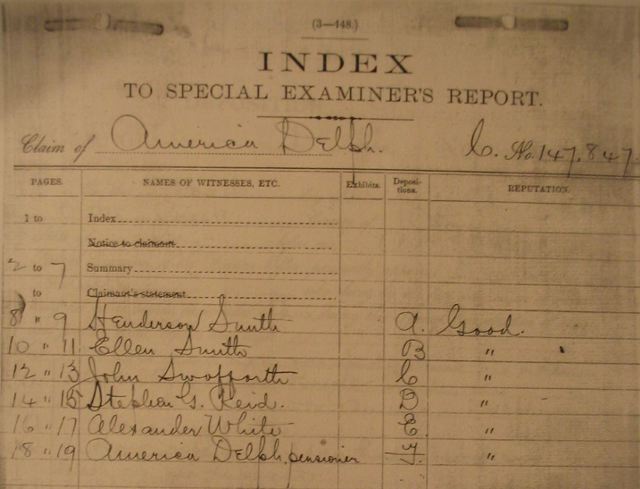 (3—448.)
INDEX
TO SPECIAL EXAMINER'S REPORT.
Claim of America Delph. C. No. 147,847
PAGES. NAMES OF WITNESSES, ETC. Exhibits. Deposi-tions. REPUTATION.
1 to Index
Notice to claimant
2 to 7 Summary
to Claimant's statement
8 " 9 Henderson Smith A. Good.
10 " 11 Ellen Smith B "
12 " 13 John Swofforth C "
14 " 15 Stephen G. Reid. D "
16 " 17 Alexander White E "
18 " 19 America Delph, pensioner F. "